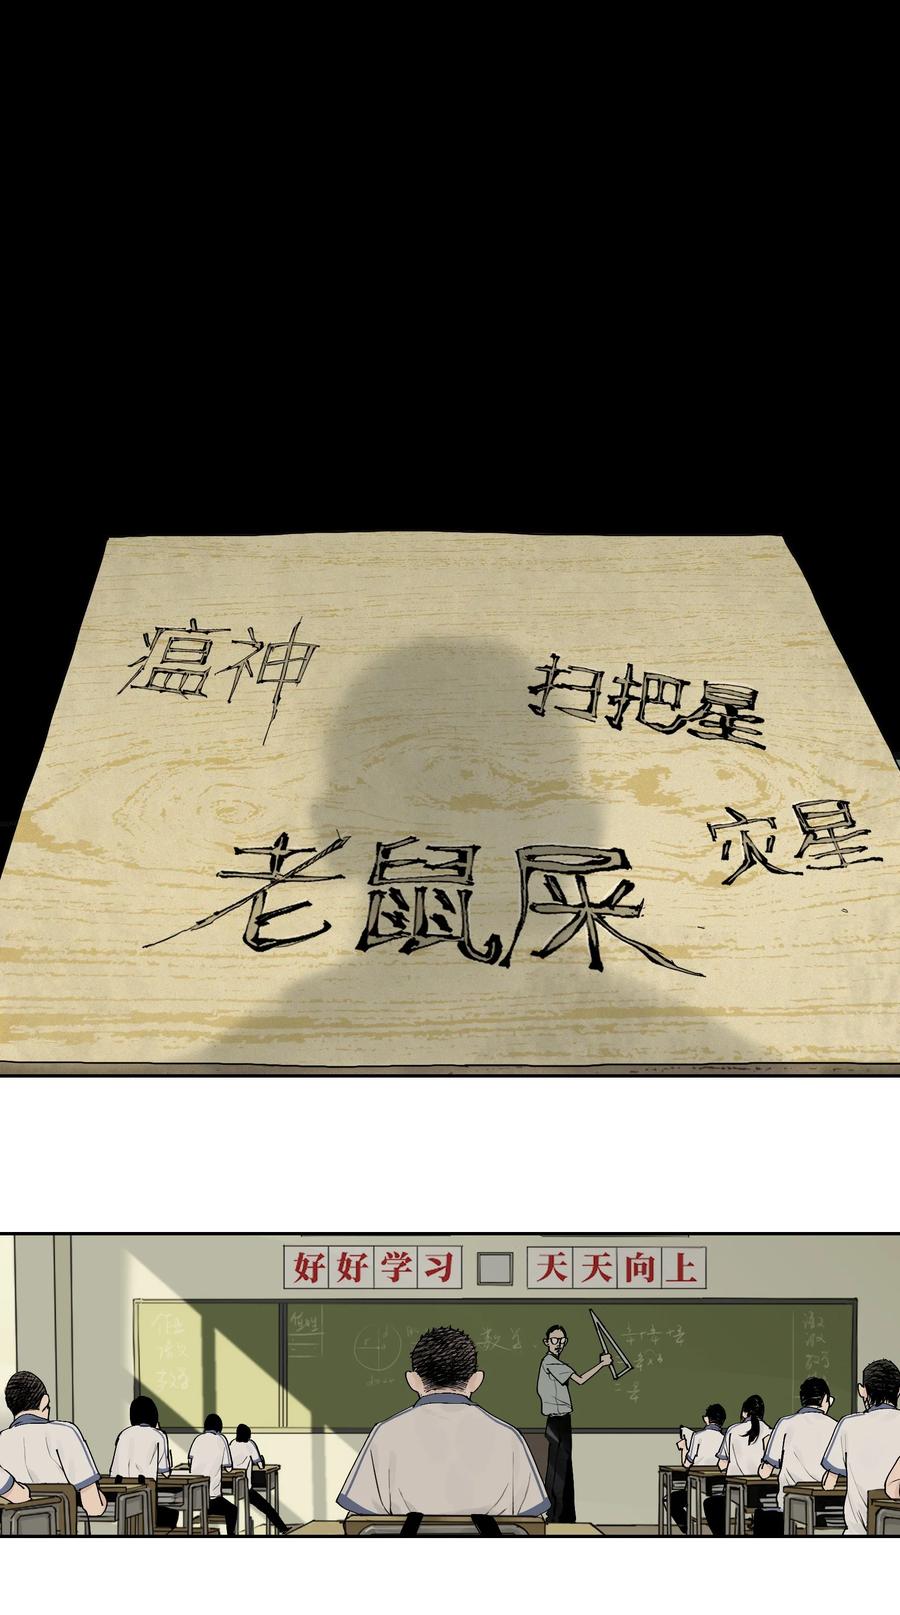 瘟神
扫把星
灾星
老鼠屎
好好学习 天天向上
值班
数学